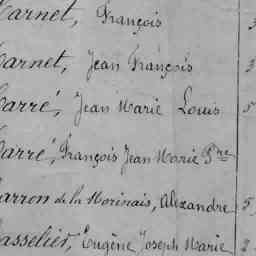 Carnet, François
Carnet, Jean François 3
Carré, Jean Marie Louis 5
Carré, François Jean Marie Pre
Carron de la Morinais, Alexandre 5
Casselier, Eugène Joseph Marie 2